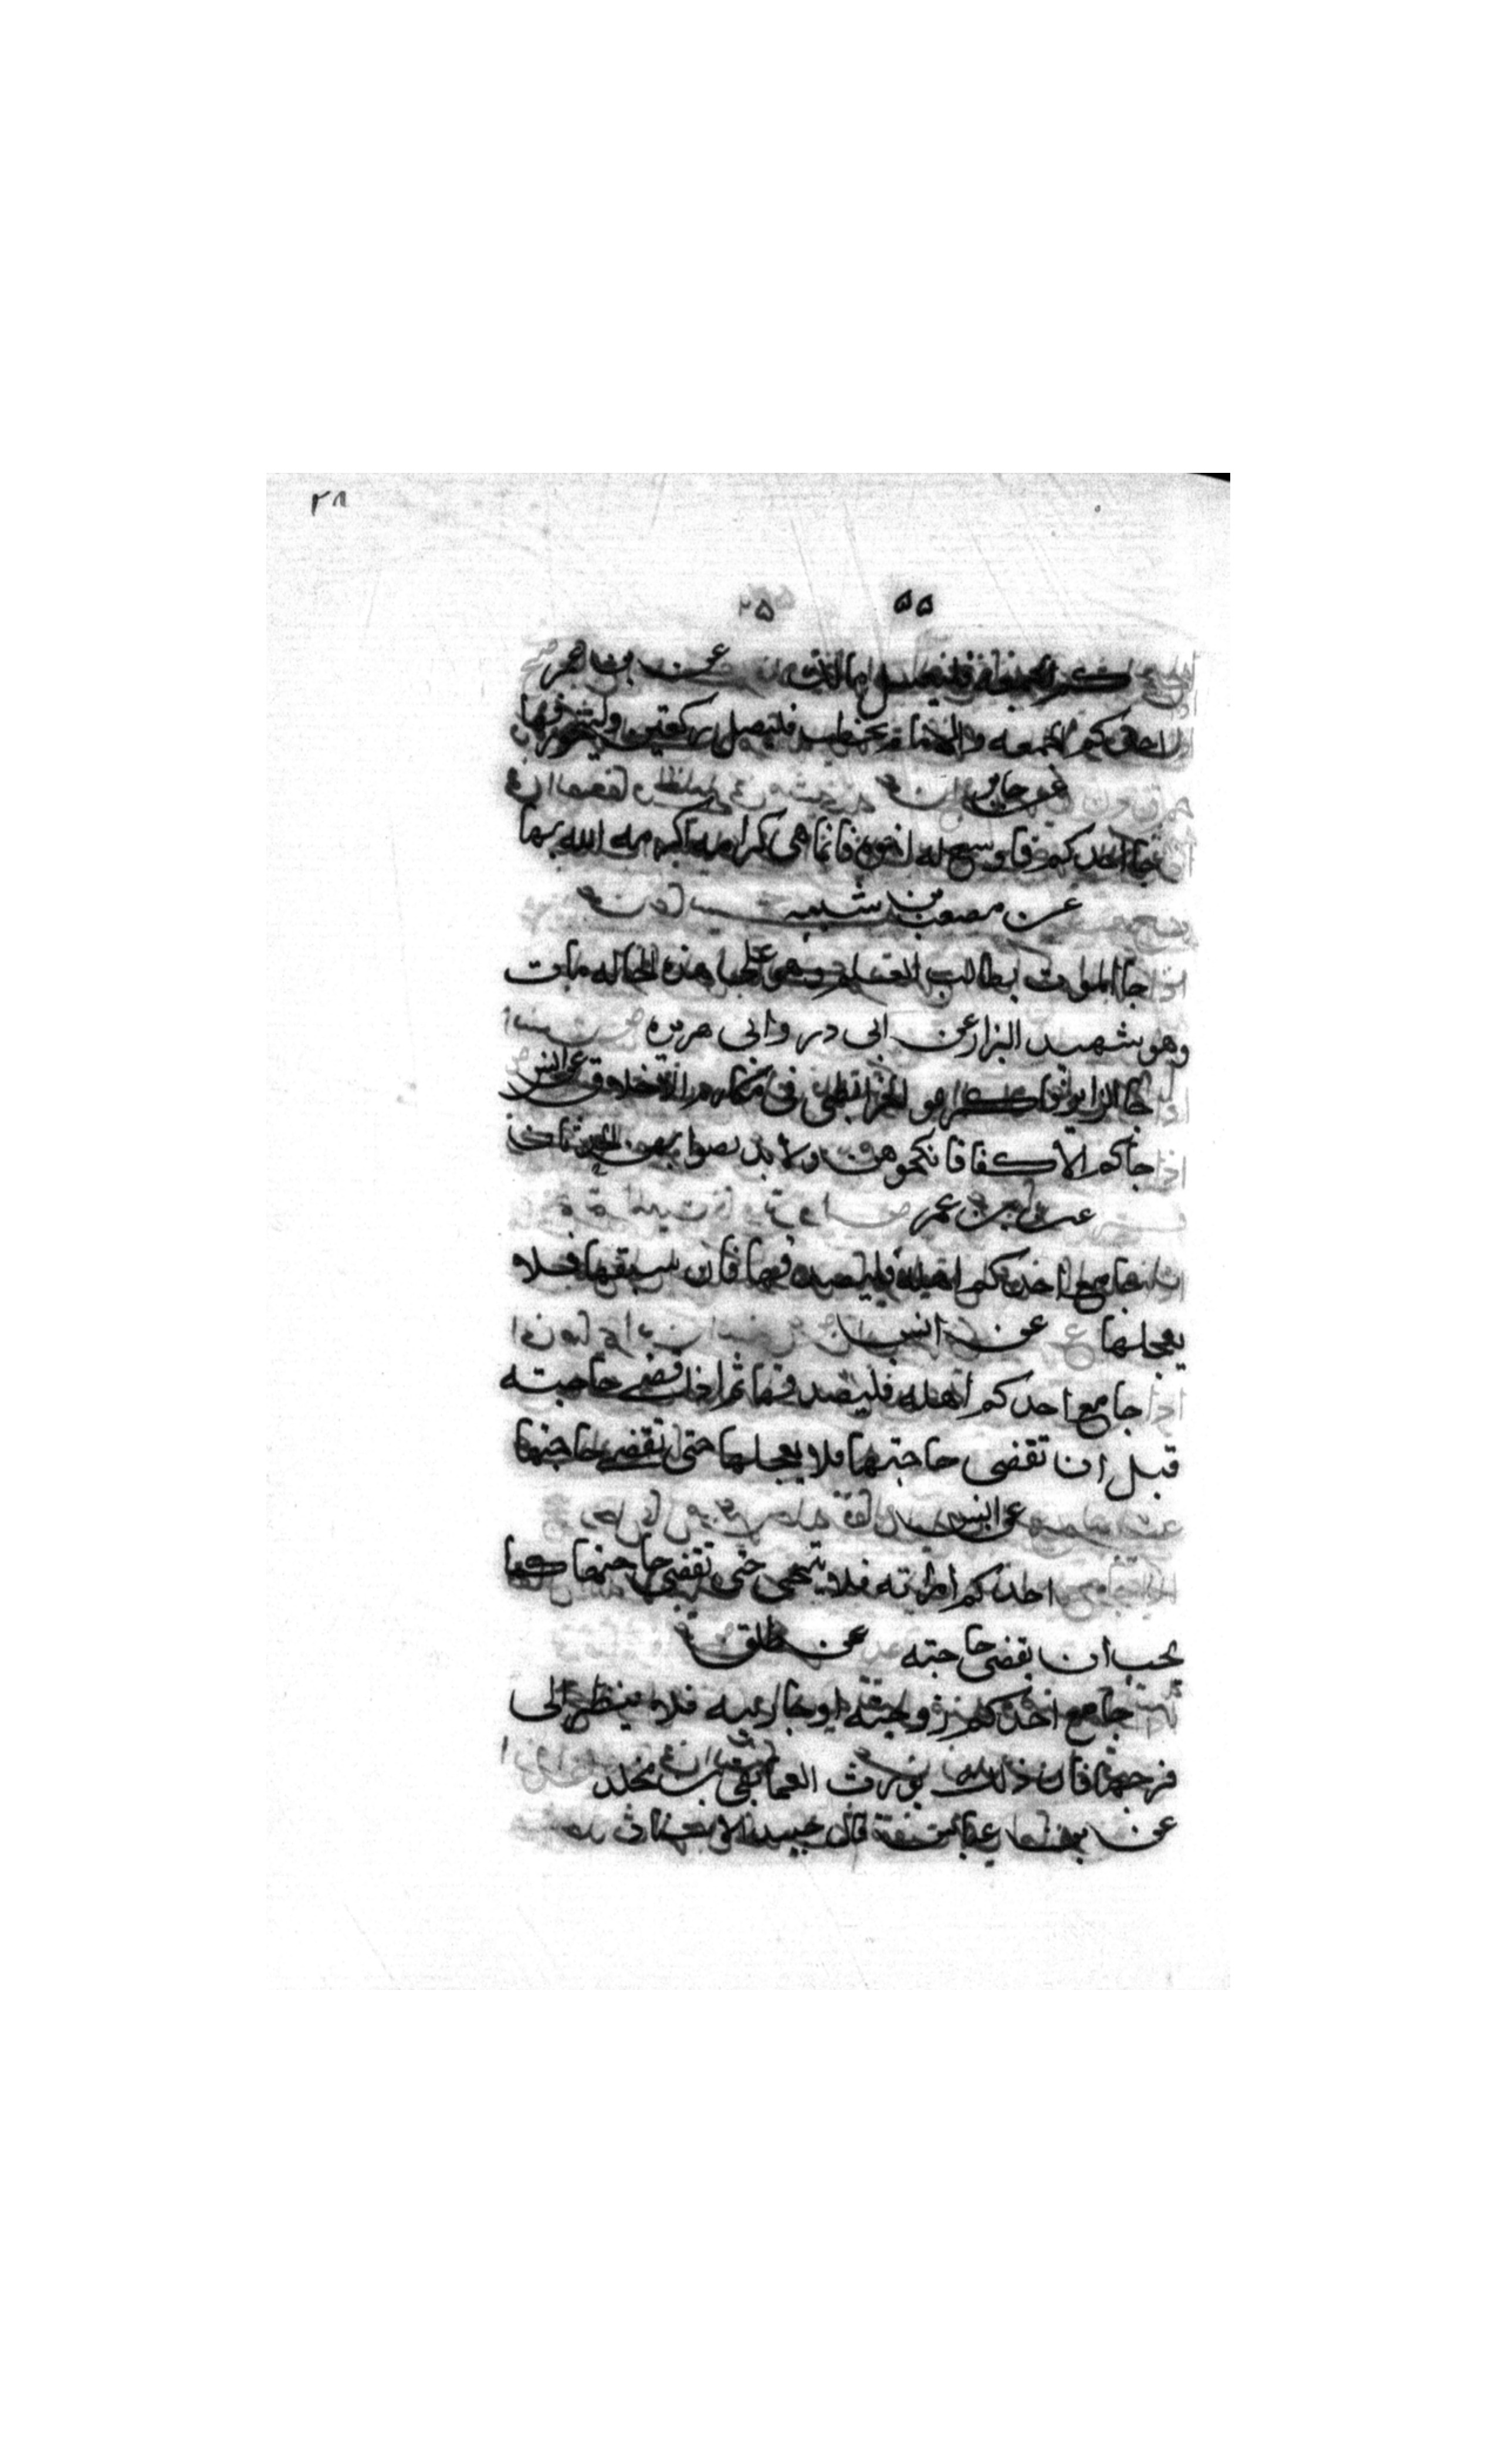 ٢٨
٥٥ ٢٥
كم الجمعة فليغتسل مالك عن بن عمر
احدكم الجمعه والامام يخطب فليصل ركعتين وليتجوز فيها
عن جابر
جا احدكم فاوسع له اخوه فانما هي كرامه اكرمه الله بها
عن مصعب بن شيبه
جا الموت لطالب العلم وهو على هذه الحاله مات
وهو شهيد البزار عن ابى در وابى هريره
جا الزاير فاكرموه الخرائطى فى مكارم الاخلاق عن انس
جاكم الاكفا فانكحوهن ولا تربصوا بهن الحدثان
عن بن عمر
جامع احدكم اهله فليصدقها فان سبقها فلا
يعجلها عن انس
جامع احدكم اهله فليصدقها ثم اذا قضى حاجته
قبل ان تقضى حاجتها فلا يعجلها حتى تقضى حاجتها
عن انس
احدكم امراته فلا يتنحى حتى تقضى حاجتها كما
يحب ان يقضى حاجته عن طلق
جامع احدكم زوجته او جاريته فلا ينظر الى
فرجها فان ذلك يورث العما بقى بن مخلد
عن بن عباس قال